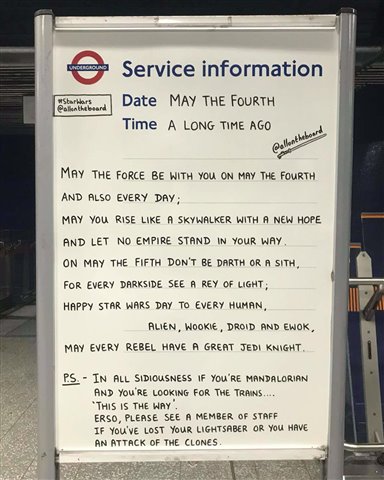 UNDERGROUND
Service information
#StarWars
@allontheboard
Date MAY THE FOURTH
Time A LONG TIME AGO
@allontheboard
MAY THE FORCE BE WITH YOU ON MAY THE FOURTH
AND ALSO EVERY DAY;
MAY YOU RISE LIKE A SKYWALKER WITH A NEW HOPE
AND LET NO EMPIRE STAND IN YOUR WAY.
ON MAY THE FIFTH DON'T BE DARTH OR A SITH,
FOR EVERY DARKSIDE SEE A REY OF LIGHT;
HAPPY STAR WARS DAY TO EVERY HUMAN,
ALIEN, WOOKIE, DROID AND EWOK,
MAY EVERY REBEL HAVE A GREAT JEDI KNIGHT.
P.S. - IN ALL SIDIOUSNESS IF YOU'RE MANDALORIAN
AND YOU'RE LOOKING FOR THE TRAINS....
'THIS IS THE WAY'.
ERSO, PLEASE SEE A MEMBER OF STAFF
IF YOU'VE LOST YOUR LIGHTSABER OR YOU HAVE
AN ATTACK OF THE CLONES.